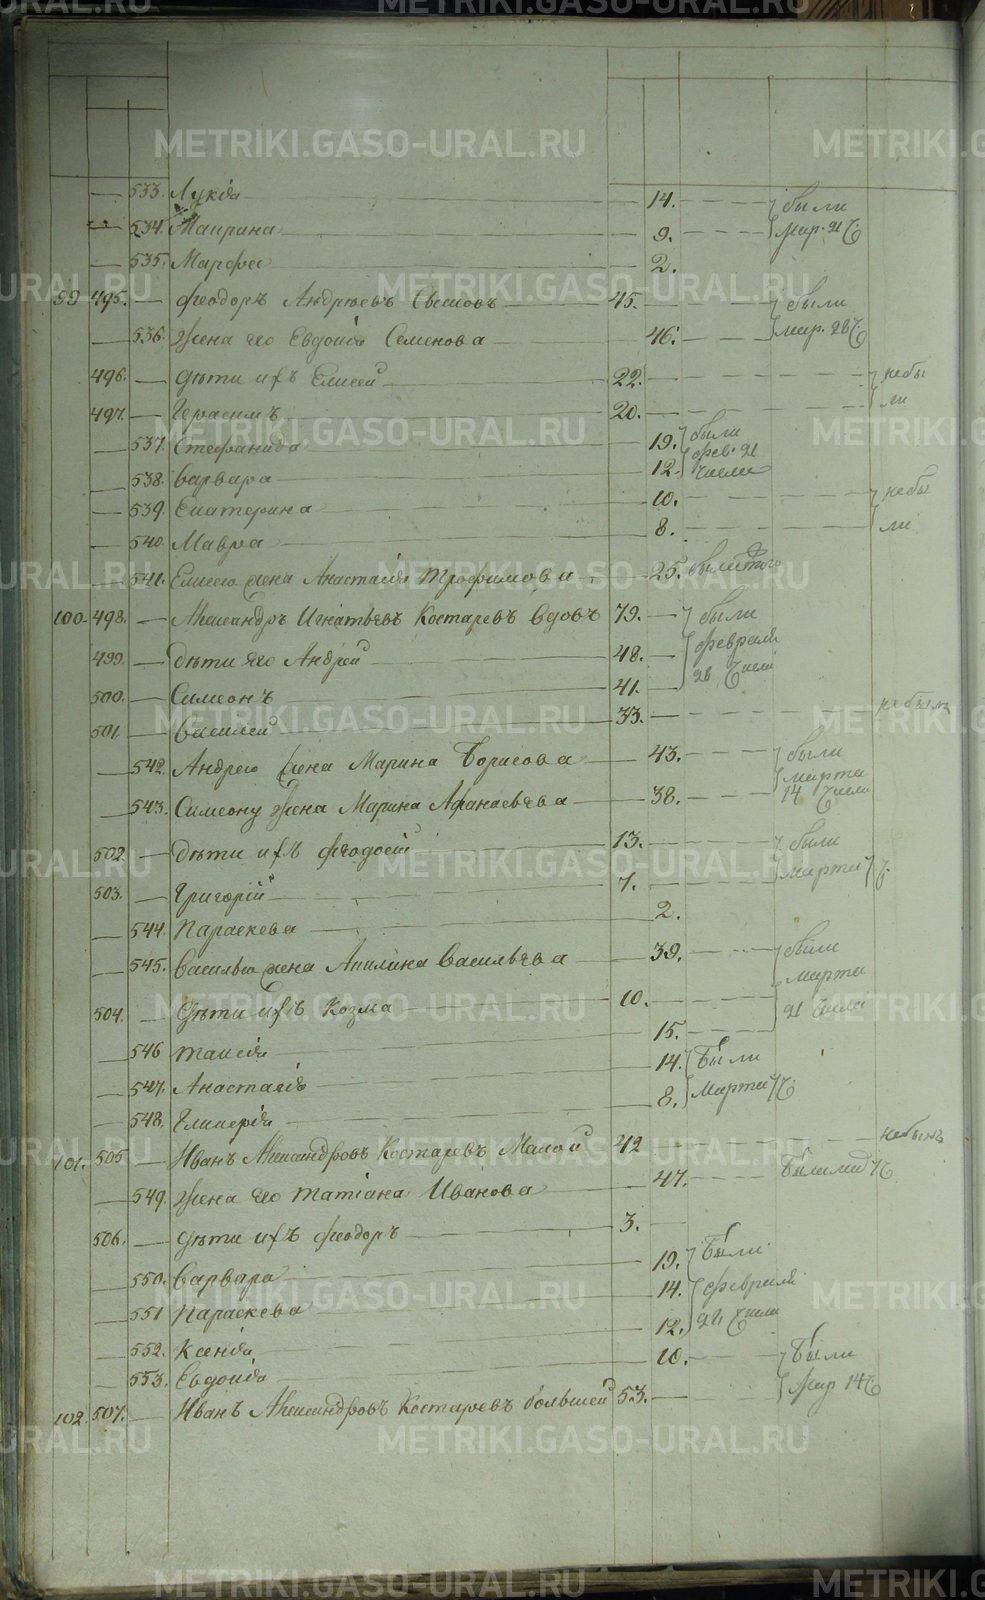 533. Лукія 14. были
534. Маирина 9. мар. 21 ч.
535. Марфа 2.
99 495. Феодоръ Андрѣевъ 45. были
536. Жена его Евдокія Семенова 46. мар. 28 ч.
496. дѣти ихъ Елисей 22. небы
497. Герасимъ 20. ли
537. Стефанида 19. были
фев. 21
538. Варвара 12. числа
539. Екатерина 10. небы
540. Мавра 8. ли
541. Елисею жена Анастасія Трофимова 25.
100 498. Александръ Игнатьевъ Костаревъ вдовъ 79. были
499. дѣти его Андрей 48. февраля
500. Симеонъ 41. 28 числа
501. Василей 33. небылъ
542. Андрею жена Марина Борисова 43. были
марта
543. Симеону жена Марина Афанасьева 38. 14 числа
502. дѣти ихъ Феодосій 13. были
503. Григорій 7. марта 7 ч.
544. Параскева 2.
545. Василью жена Акилина Васильева 39. были
марта
504. дѣти ихъ Козма 10. 21 числа
546 Таисія 15.
547. Анастасія 14. были
548. Гликерія 8. марта 7 ч.
101. 505 Иванъ Александровъ Костаревъ Малой 42 небылъ
549. Жена его Татіана Иванова 47.
506. дѣти ихъ Феодоръ 3.
550. Варвара 19. были
551 Параскева 14. февраля
552. Ксенія 12. 28 числа
553. Евдокія 10. были
102. 507. Иванъ Александровъ Костаревъ большей 53. мар 14 ч
METRIKI.GASO-URAL.RU